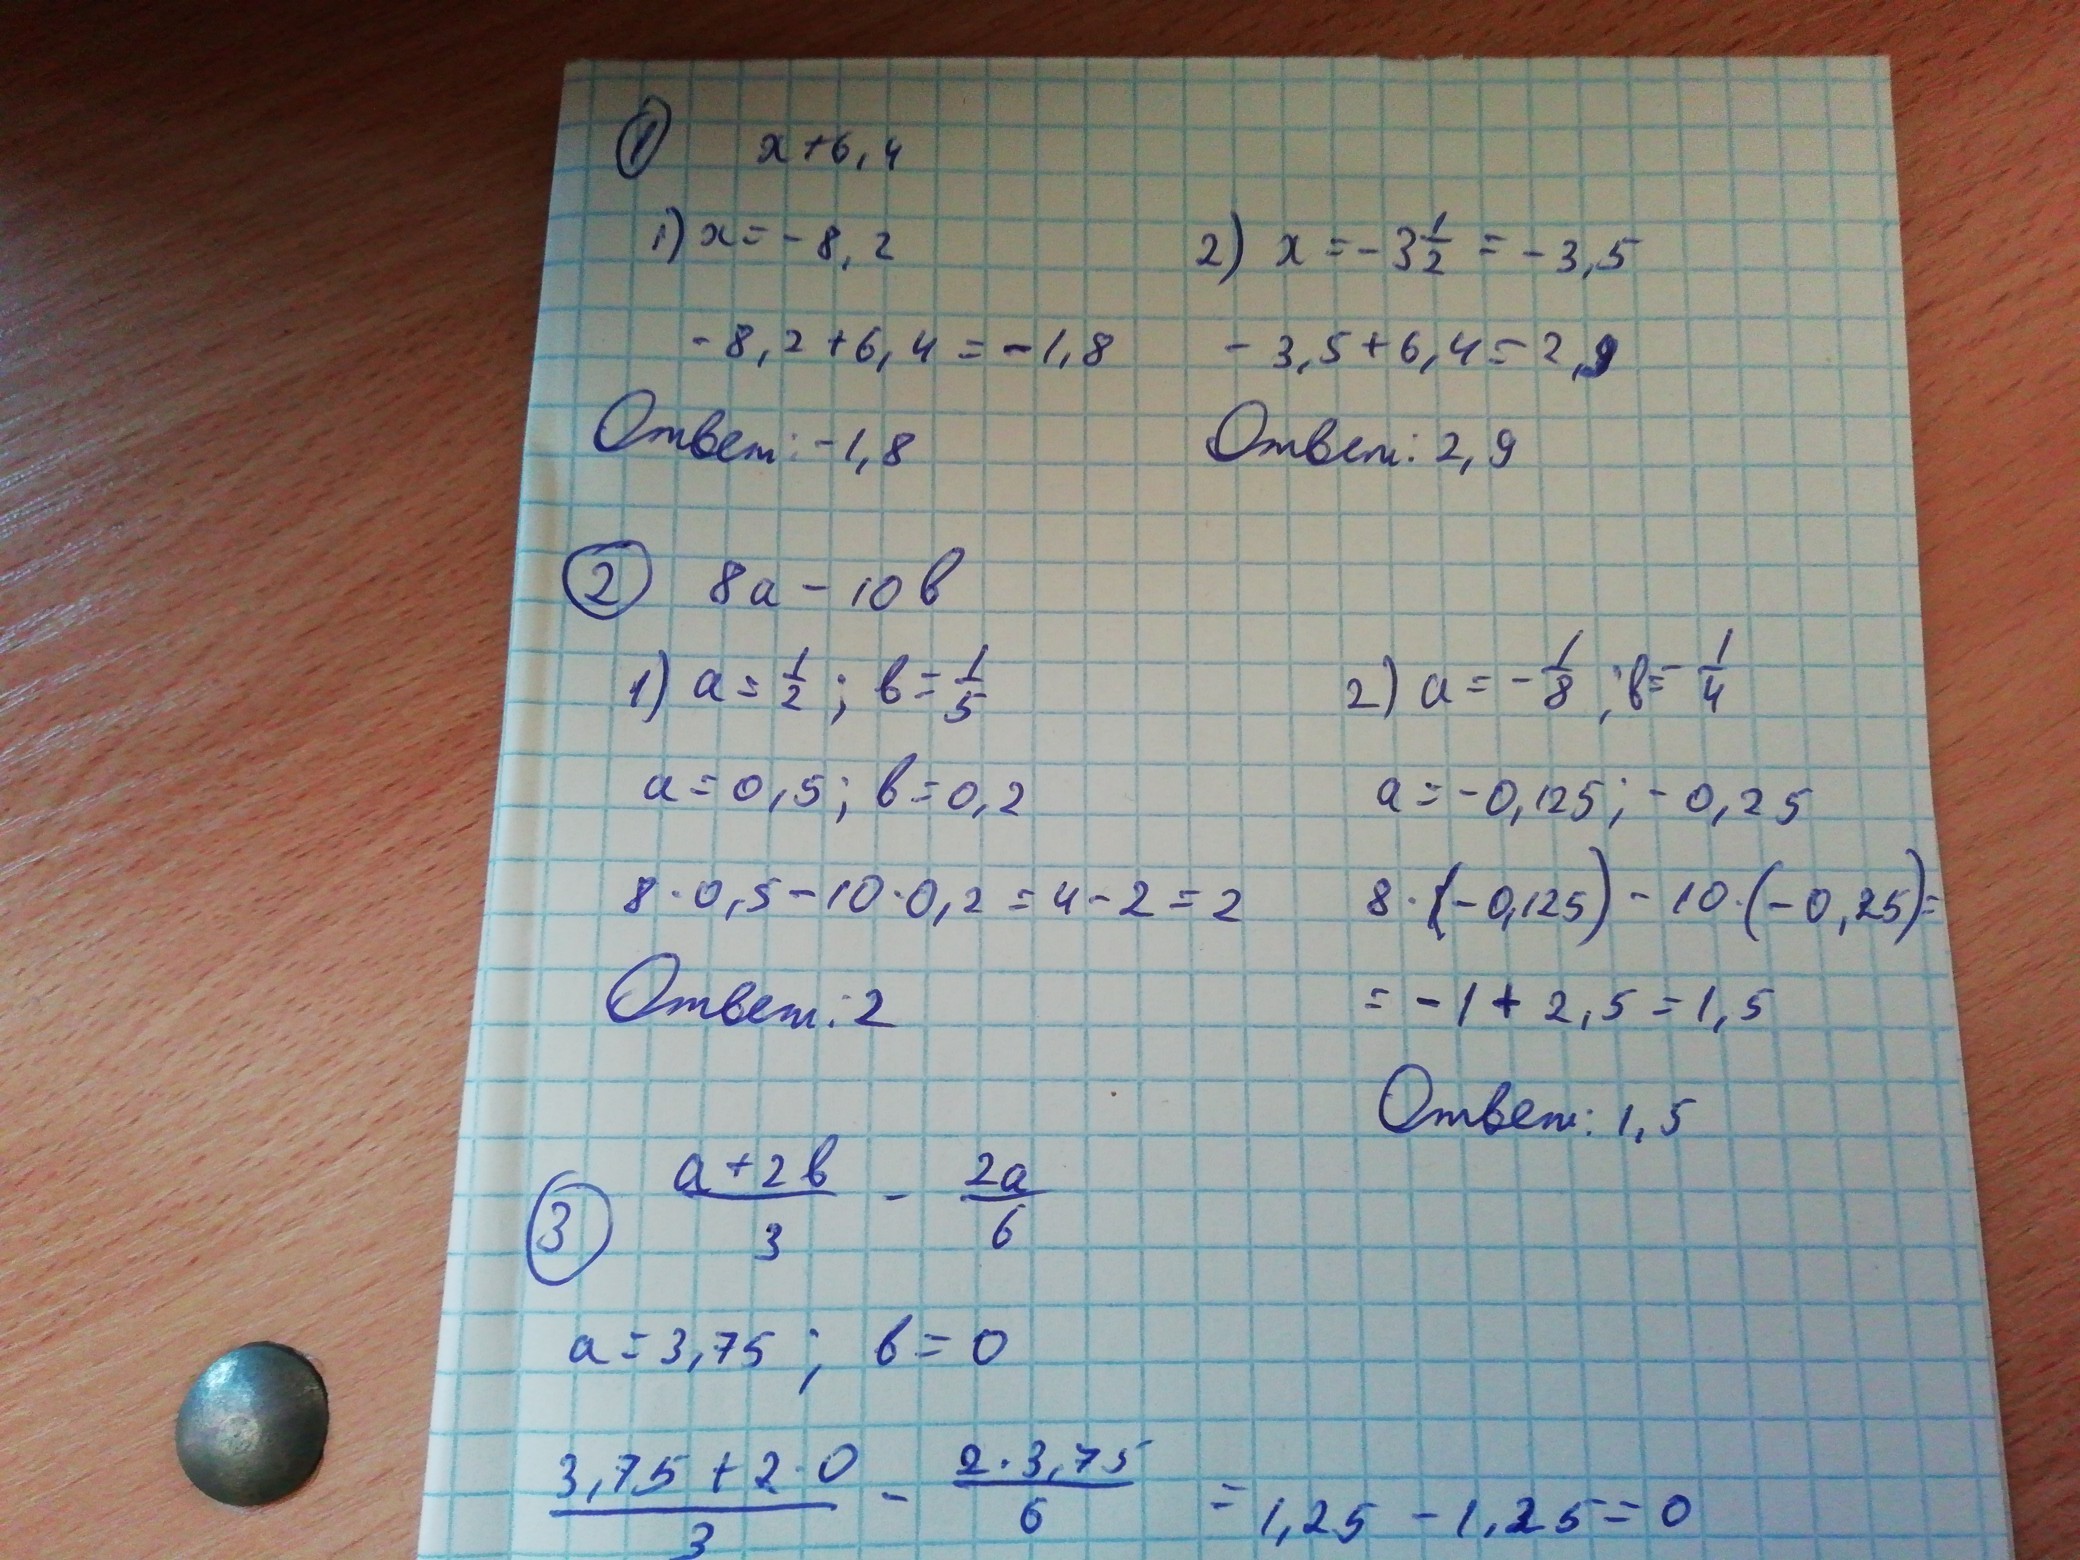 1 x+6,4
1) x=-8,2 2) x=-3 1/2 = -3,5
-8,2+6,4=-1,8 -3,5+6,4=2,9
Ответ: -1,8 Ответ: 2,9
2 8a-10b
1) a=1/2; b=1/5 2) a=-1/8; b=-1/4
a=0,5; b=0,2 a=-0,125; -0,25
8·0,5-10·0,2=4-2=2 8·(-0,125)-10·(-0,25)=
Ответ: 2 =-1+2,5=1,5
Ответ: 1,5
3 (a+2b)/3 - 2a/6
a=3,75; b=0
(3,75+2·0)/3 - (2·3,75)/6 = 1,25-1,25=0